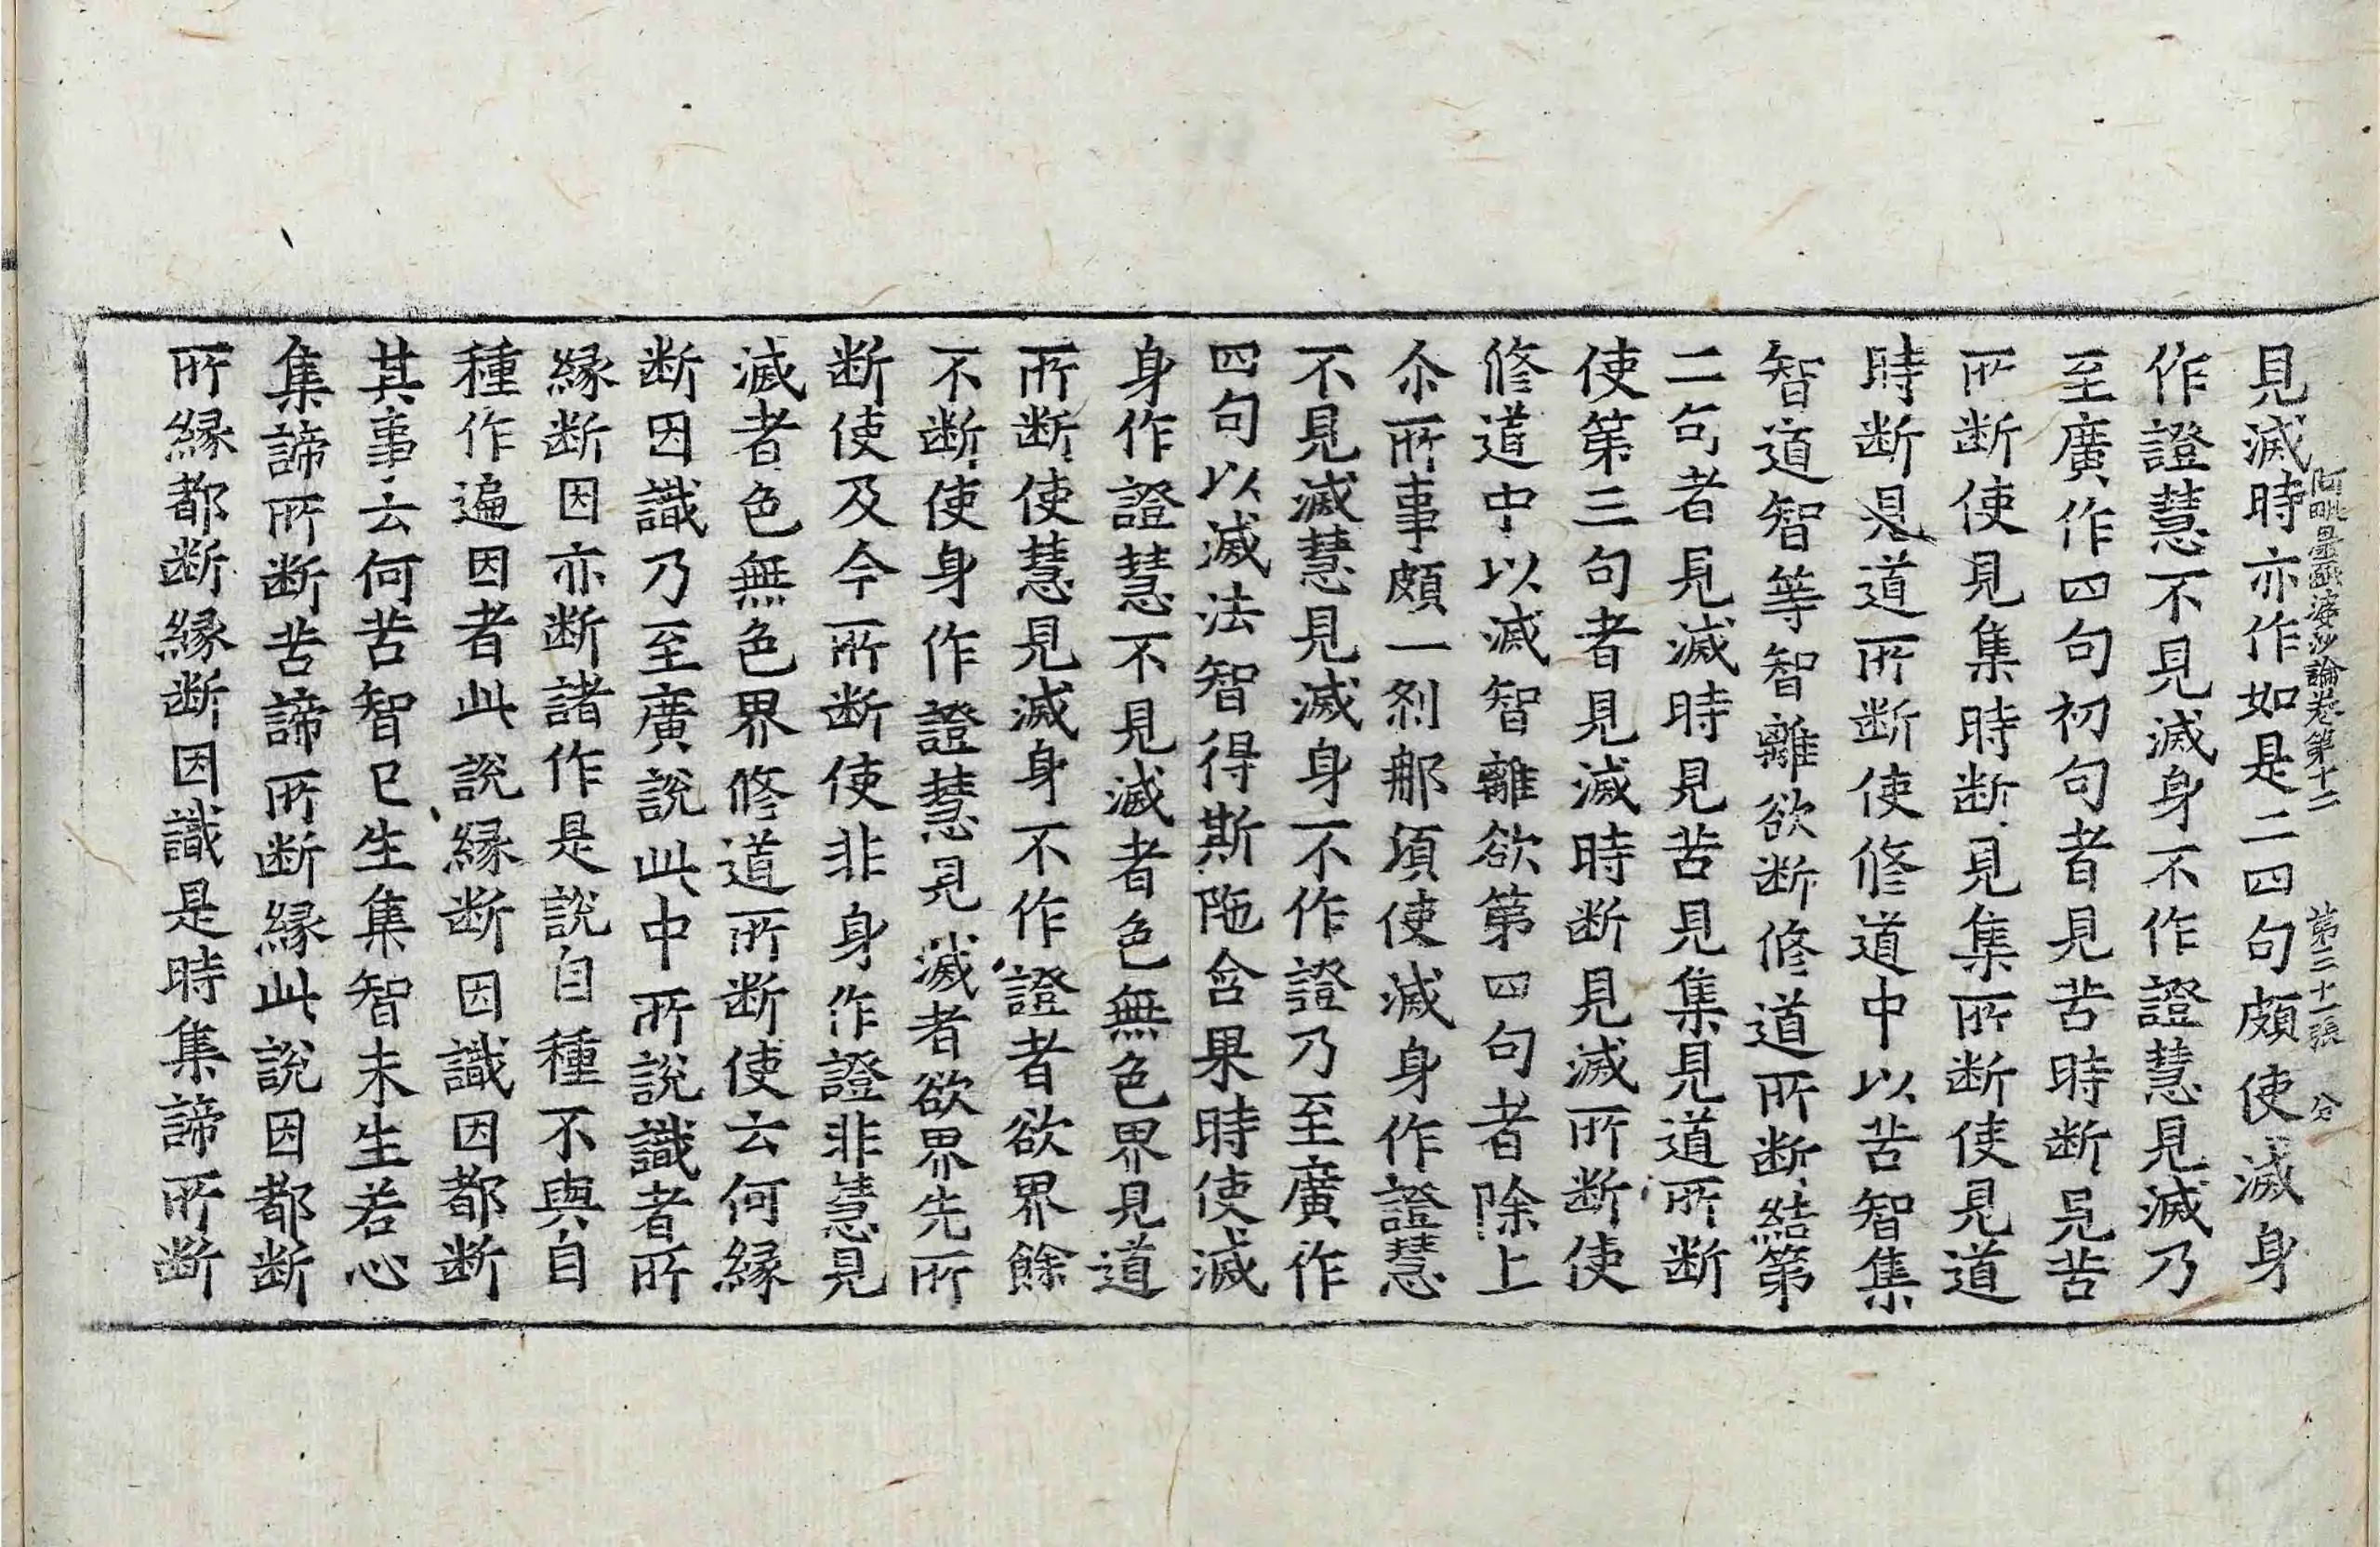 阿毗曇毗婆沙論卷第十二 第三十一張 分
見滅時亦作如是二四句頗使滅身
作證慧不見滅身不作證慧見滅乃
至廣作四句初句者見苦時断見苦
所断使見集時断見集所断使見道
時断見道所断使修道中以苦智集
智道智等智離欲断修道所断結第
二句者見滅時見苦見集見道所断
使第三句者見滅時断見滅所断使
修道中以滅智離欲第四句者除上
尒所事頗一剎那頃使滅身作證慧
不見滅慧見滅身不作證乃至廣作
四句以滅法智得斯陁含果時使滅
身作證慧不見滅者色無色界見道
所断使慧見滅身不作證者欲界餘
不断使身作證慧見滅者欲界先所
断使及今所断使非身作證非慧見
滅者色無色界修道所断使云何縁
断因識乃至廣說此中所說識者所
縁断因亦断諸作是說自種不與自
種作遍因者此說縁断因識因都断
其事云何苦智已生集智未生若心
集諦所断苦諦所断縁此說因都断
所縁都断縁断因識是時集諦所断